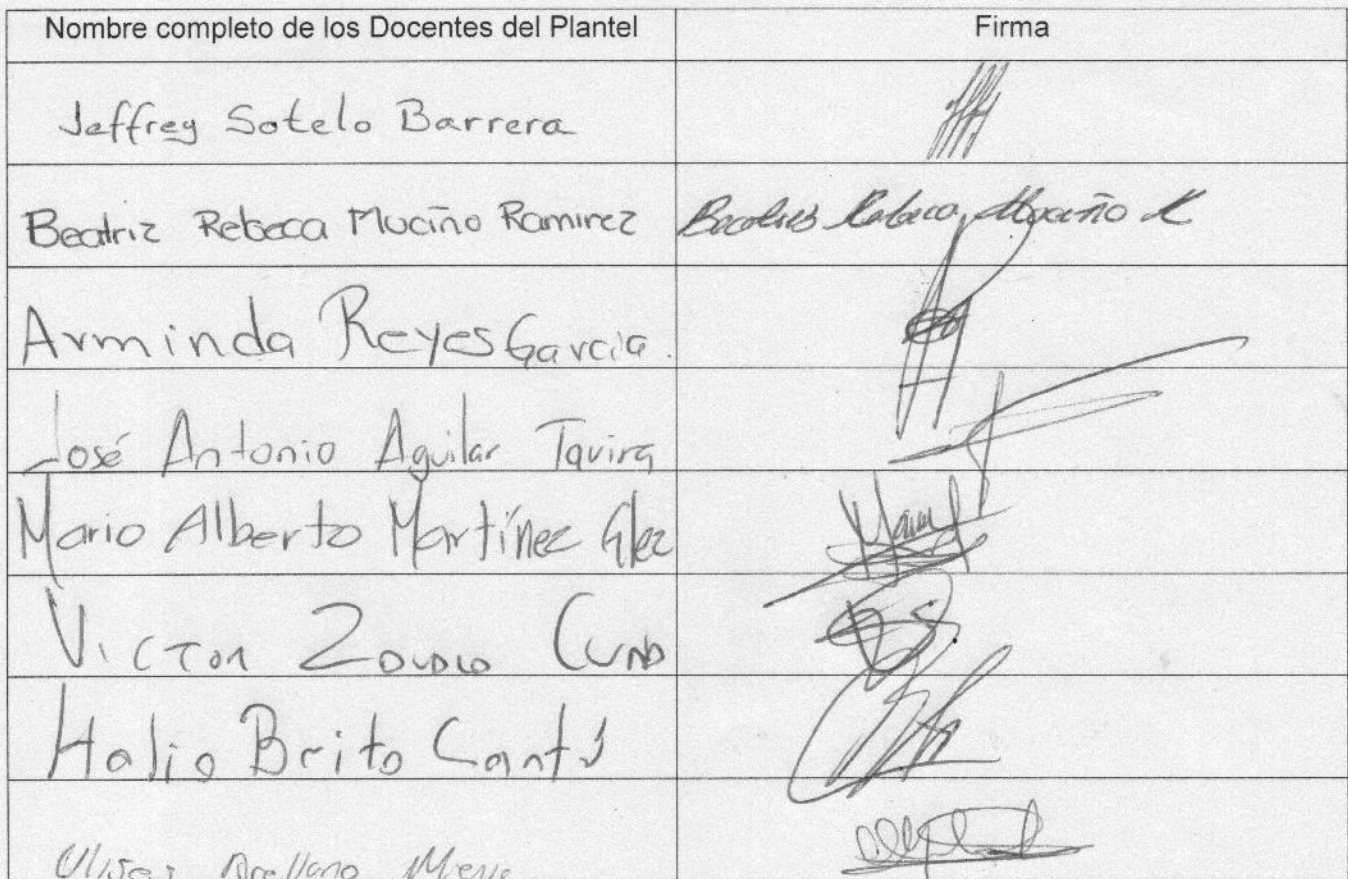 Nombre completo de los Docentes del Plantel Firma
Jeffrey Sotelo Barrera
Beatriz Rebeca Muciño Ramirez Beatriz Rebeca Muciño R
Arminda Reyes Garcia.
José Antonio Aguilar Tavira
Mario Alberto Martínez Glez
Victor
Halio Brito Cantú
Ulises Arellano